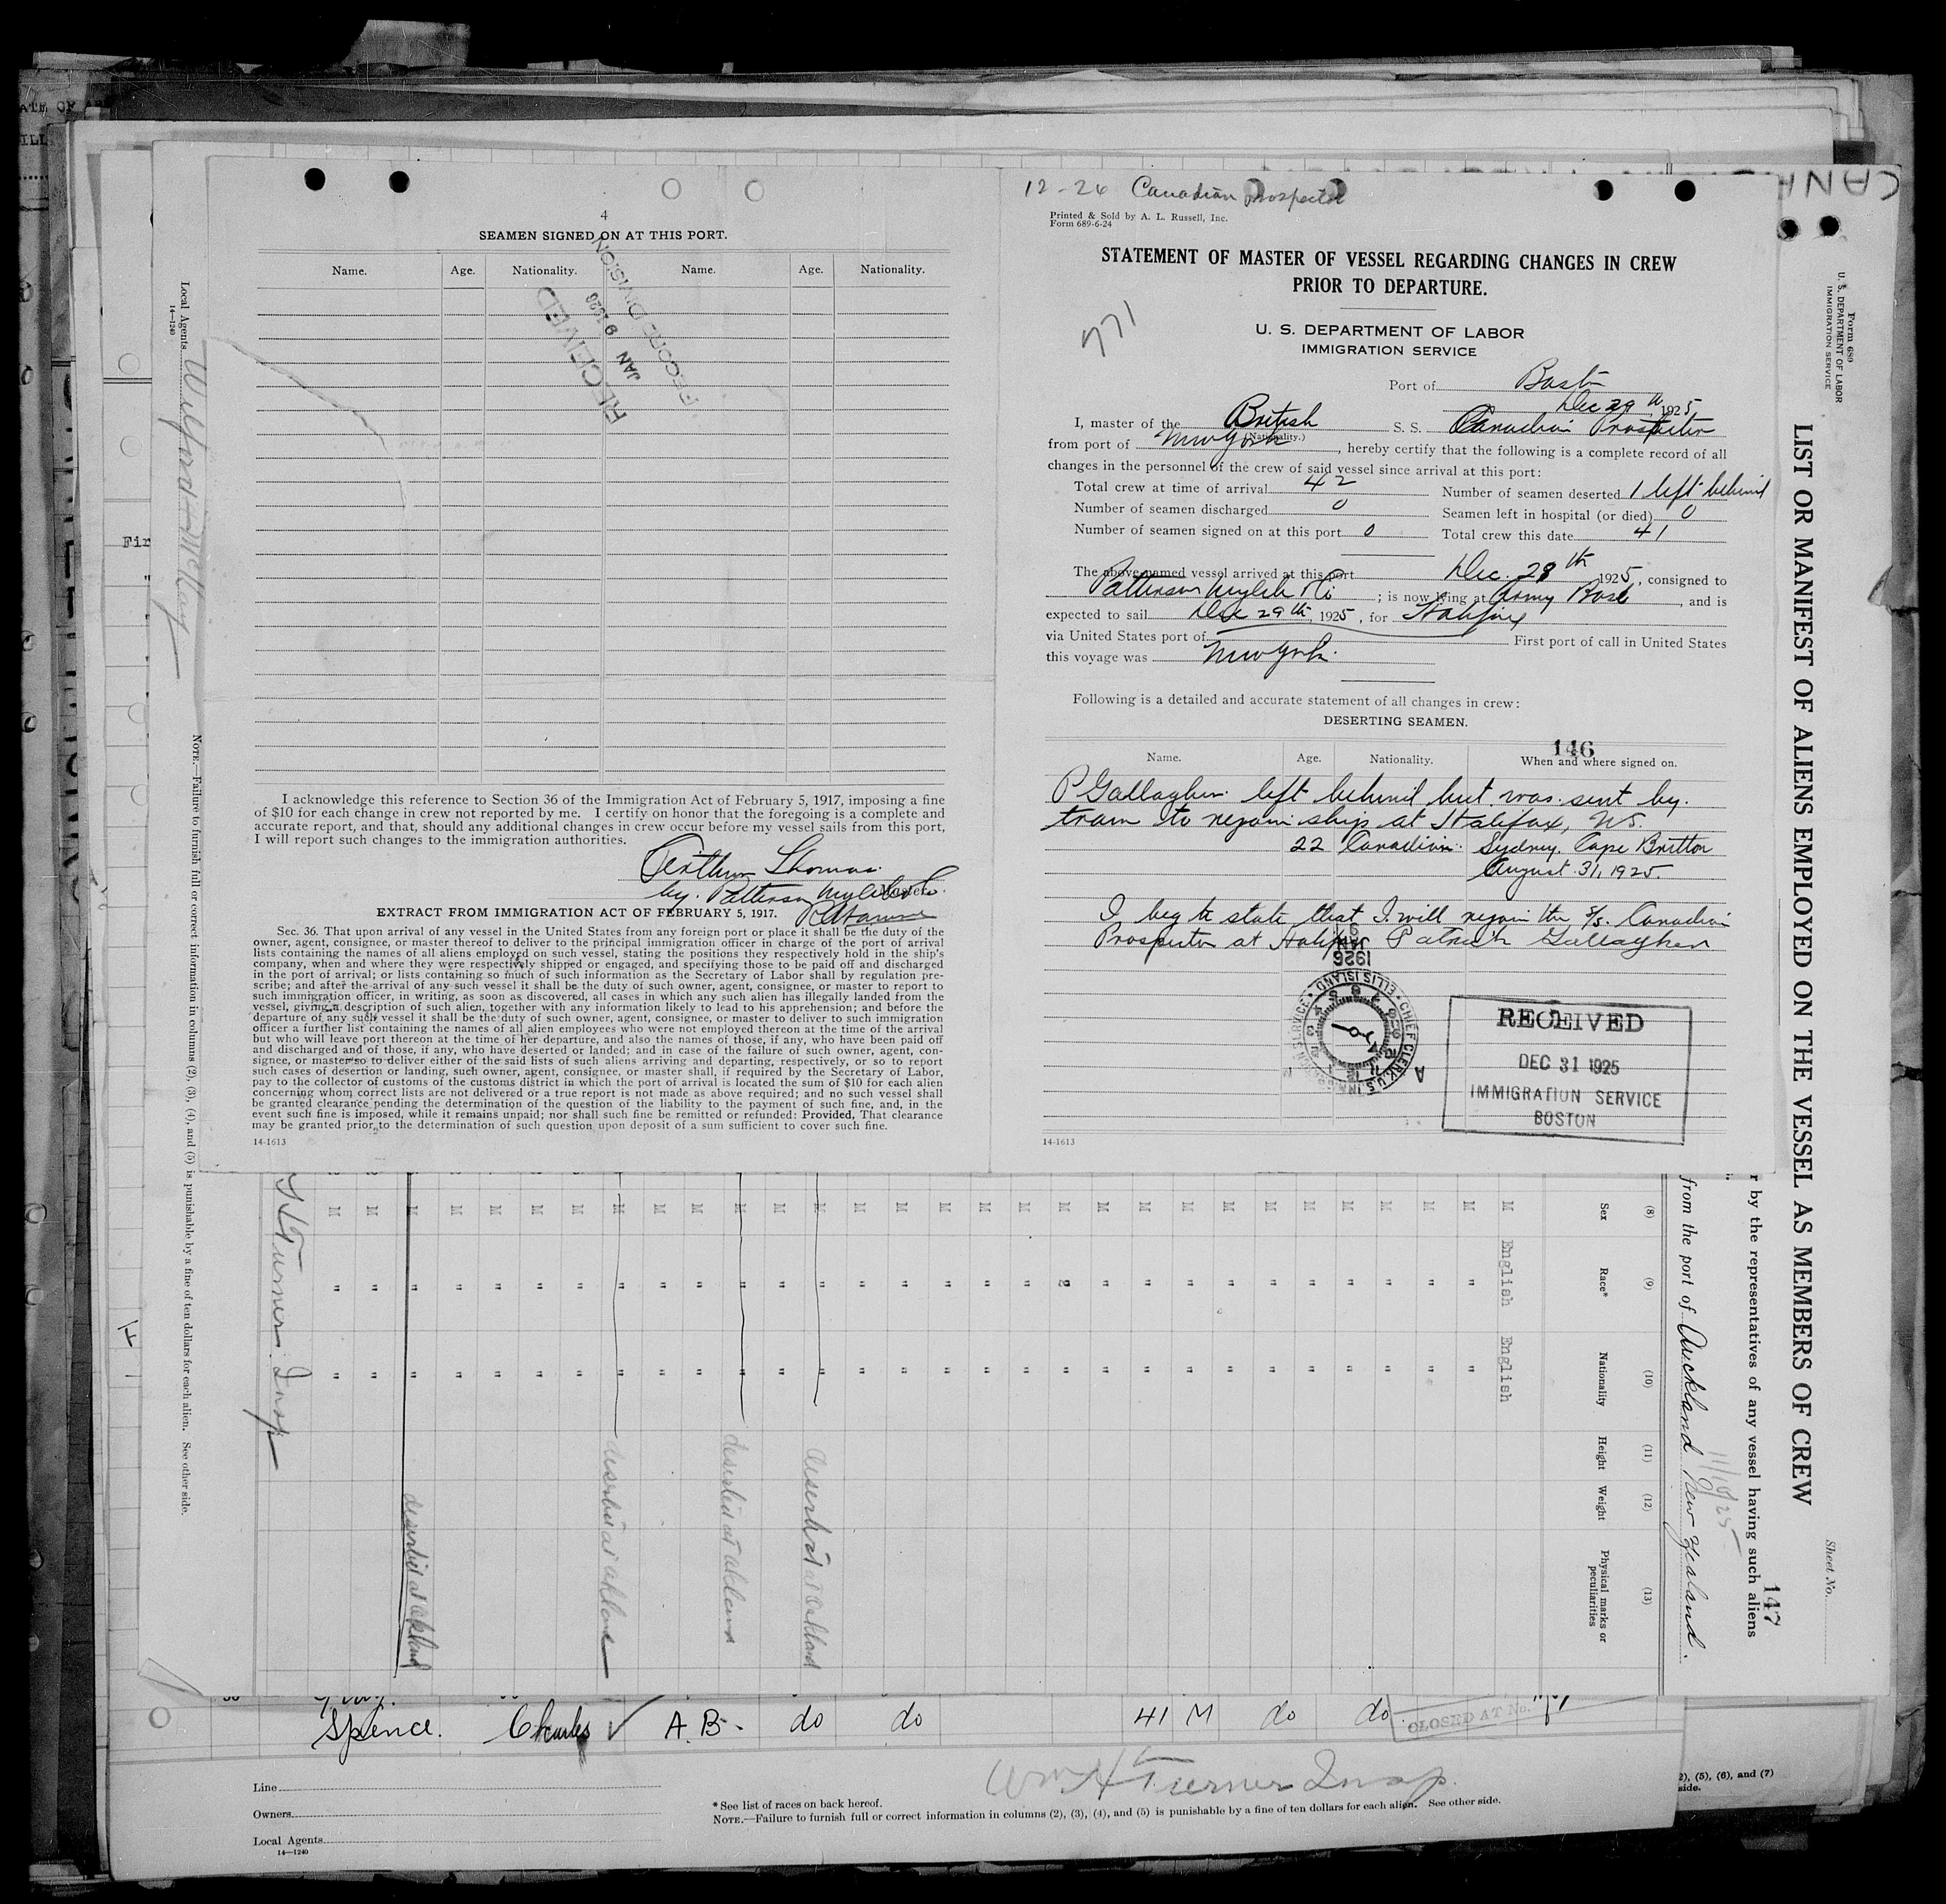 4
SEAMEN SIGNED ON AT THIS PORT.
Name. Age. Nationality. Name. Age. Nationality.
RECEIVED
JAN 9 1926
RECORD DIVISION
I acknowledge this reference to Section 36 of the Immigration Act of February 5, 1917, imposing a fine
of $10 for each change in crew not reported by me. I certify on honor that the foregoing is a complete and
accurate report, and that, should any additional changes in crew occur before my vessel sails from this port,
I will report such changes to the immigration authorities.
Arthur Thomas
by. Patterson
Master.
EXTRACT FROM IMMIGRATION ACT OF FEBRUARY 5, 1917.
Sec. 36. That upon arrival of any vessel in the United States from any foreign port or place it shall be the duty of the
owner, agent, consignee, or master thereof to deliver to the principal immigration officer in charge of the port of arrival
lists containing the names of all aliens employed on such vessel, stating the positions they respectively hold in the ship's
company, when and where they were respectively shipped or engaged, and specifying those to be paid off and discharged
in the port of arrival; or lists containing so much of such information as the Secretary of Labor shall by regulation pre-
scribe; and after the arrival of any such vessel it shall be the duty of such owner, agent, consignee, or master to report to
such immigration officer, in writing, as soon as discovered, all cases in which any such alien has illegally landed from the
vessel, giving a description of such alien, together with any information likely to lead to his apprehension; and before the
departure of any such vessel it shall be the duty of such owner, agent, consignee, or master to deliver to such immigration
officer a further list containing the names of all alien employees who were not employed thereon at the time of the arrival
but who will leave port thereon at the time of her departure, and also the names of those, if any, who have been paid off
and discharged and of those, if any, who have deserted or landed; and in case of the failure of such owner, agent, con-
signee, or master so to deliver either of the said lists of such aliens arriving and departing, respectively, or so to report
such cases of desertion or landing, such owner, agent, consignee, or master shall, if required by the Secretary of Labor,
pay to the collector of customs of the customs district in which the port of arrival is located the sum of $10 for each alien
concerning whom correct lists are not delivered or a true report is not made as above required; and no such vessel shall
be granted clearance pending the determination of the question of the liability to the payment of such fine, and, in the
event such fine is imposed, while it remains unpaid; nor shall such fine be remitted or refunded: Provided, That clearance
may be granted prior to the determination of such question upon deposit of a sum sufficient to cover such fine.
14-1613
12-26 Canadian Prospector
Printed & Sold by A. L. Russell, Inc.
Form 689-6-24
STATEMENT OF MASTER OF VESSEL REGARDING CHANGES IN CREW
PRIOR TO DEPARTURE.
771
U. S. DEPARTMENT OF LABOR
IMMIGRATION SERVICE
Port of Boston
Dec 29th, 1925
I, master of the British S. S. Canadian Prospector
(Nationality.)
from port of New York, hereby certify that the following is a complete record of all
changes in the personnel of the crew of said vessel since arrival at this port:
Total crew at time of arrival 42 Number of seamen deserted 1 left behind
Number of seamen discharged 0 Seamen left in hospital (or died) 0
Number of seamen signed on at this port 0 Total crew this date 41
The above-named vessel arrived at this port Dec. 28th 1925, consigned to
Patterson Wylde & Co; is now lying at Army Base, and is
expected to sail Dec 29th, 1925, for Halifax
via United States port of First port of call in United States
this voyage was New York.
Following is a detailed and accurate statement of all changes in crew:
DESERTING SEAMEN.
146
Name. Age. Nationality. When and where signed on.
P Gallagher left behind but was sent by
train to rejoin ship at Halifax, N.S.
22 Canadian Sydney. Cape Britton
August 31, 1925.
I beg to state that I will rejoin the S/s. Canadian
Prospector at Halifax Patrick Gallagher
JAN 9
1926
CHIEF CLERK, U.S. IMMIGRATION SERVICE ELLIS ISLAND
RECEIVED
DEC 31 1925
IMMIGRATION SERVICE
BOSTON
14-1613
CANA
Form 689
U. S. DEPARTMENT OF LABOR
IMMIGRATION SERVICE
LIST OR MANIFEST OF ALIENS EMPLOYED ON THE VESSEL AS MEMBERS OF CREW
Sheet No.
147
r by the representatives of any vessel having such aliens
11/10/25
from the port of Auckland New Zealand.
(8) (9) (10) (11) (12) (13)
Sex Race* Nationality Height Weight Physical marks or peculiarities
M English English
M " "
deserted at Oakland
deserted at Oakland
deserted at Oakland
deserted at Oakland
Turner Insp
Local Agents Wilford McKay
14—1240
NOTE.—Failure to furnish full or correct information in columns (2), (3), (4), and (5) is punishable by a fine of ten dollars for each alien. See other side.
Fir
Spence. Charles ✓ A.B. do do 41 M do do
CLOSED AT No.
Wm H Turner Insp.
Line
Owners
Local Agents
14—1240
*See list of races on back hereof.
NOTE.—Failure to furnish full or correct information in columns (2), (3), (4), and (5) is punishable by a fine of ten dollars for each alien. See other side.
2), (5), (6), and (7)
side.